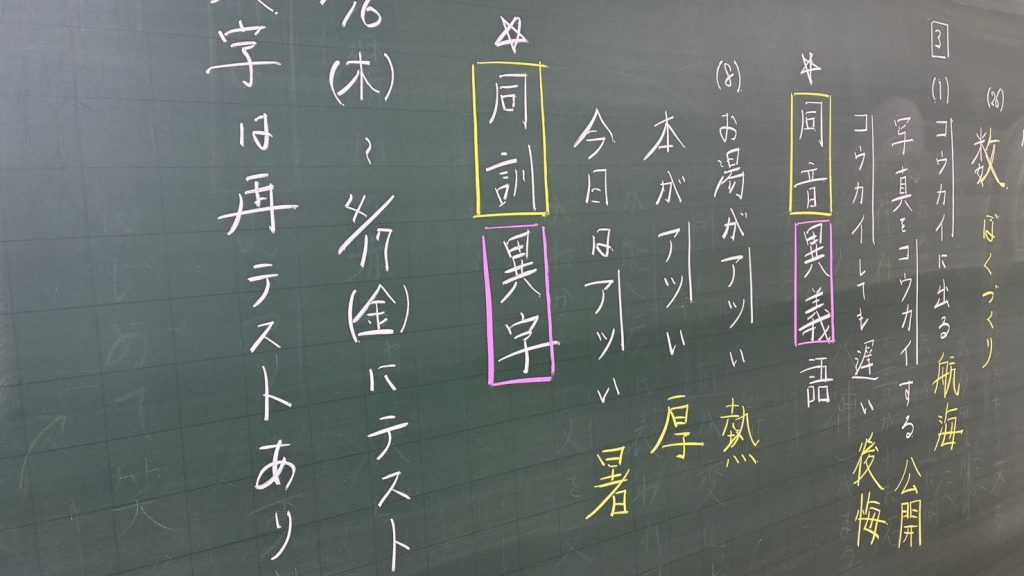 (26) 数 ぼくづくり
3 (1) コウカイに出る 航海
写真をコウカイする 公開
コウカイしても遅い 後悔
☆ 同音異義語
(8) お湯がアツい 熱
本がアツい 厚
今日はアツい 暑
☆ 同訓異字
/16(木)~4/17(金)にテスト
字は再テストあり